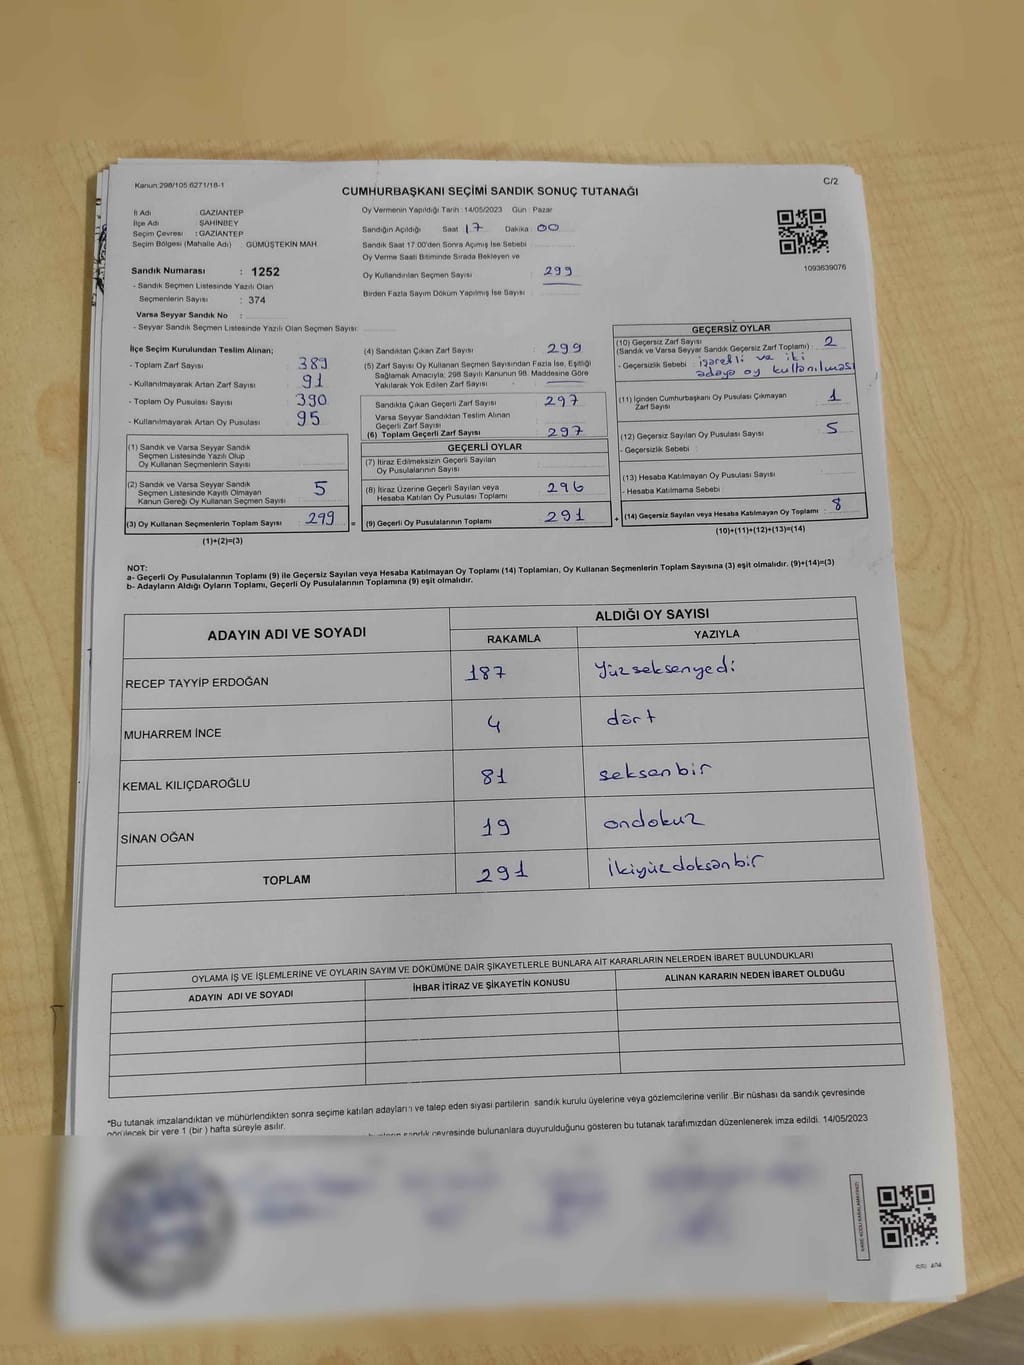 Kanun:298/105 6271/18-1
C/2
CUMHURBAŞKANI SEÇİMİ SANDIK SONUÇ TUTANAĞI
İl Adı : GAZİANTEP
İlçe Adı : ŞAHİNBEY
Seçim Çevresi : GAZİANTEP
Seçim Bölgesi (Mahalle Adı) : GÜMÜŞTEKİN MAH.
Sandık Numarası : 1252
- Sandık Seçmen Listesinde Yazılı Olan
Seçmenlerin Sayısı : 374
Varsa Seyyar Sandık No :
- Seyyar Sandık Seçmen Listesinde Yazılı Olan Seçmen Sayısı:
Oy Vermenin Yapıldığı Tarih : 14/05/2023 Gün : Pazar
Sandığın Açıldığı Saat 17 Dakika : 00
Sandık Saat 17:00'den Sonra Açımış İse Sebebi
Oy Verme Saati Bitiminde Sırada Bekleyen ve
Oy Kullandırılan Seçmen Sayısı : 299
Birden Fazla Sayım Döküm Yapılmış İse Sayısı :
1093639076
İlçe Seçim Kurulundan Teslim Alınan;
- Toplam Zarf Sayısı : 389
- Kullanılmayarak Artan Zarf Sayısı : 91
- Toplam Oy Pusulası Sayısı : 390
- Kullanılmayarak Artan Oy Pusulası : 95
(1) Sandık ve Varsa Seyyar Sandık
Seçmen Listesinde Yazılı Olup
Oy Kullanan Seçmenlerin Sayısı :
(2) Sandık ve Varsa Seyyar Sandık
Seçmen Listesinde Kayıtlı Olmayan
Kanun Gereği Oy Kullanan Seçmen Sayısı : 5
(3) Oy Kullanan Seçmenlerin Toplam Sayısı : 299 =
(1)+(2)=(3)
(4) Sandıktan Çıkan Zarf Sayısı : 299
(5) Zarf Sayısı Oy Kullanan Seçmen Sayısından Fazla İse, Eşitliği
Sağlamak Amacıyla; 298 Sayılı Kanunun 98. Maddesine Göre
Yakılarak Yok Edilen Zarf Sayısı :
Sandıkta Çıkan Geçerli Zarf Sayısı : 297
Varsa Seyyar Sandıktan Teslim Alınan
Geçerli Zarf Sayısı :
(6) Toplam Geçerli Zarf Sayısı : 297
GEÇERLİ OYLAR
(7) İtiraz Edilmeksizin Geçerli Sayılan
Oy Pusulalarının Sayısı :
(8) İtiraz Üzerine Geçerli Sayılan veya
Hesaba Katılan Oy Pusulası Toplamı : 296
(9) Geçerli Oy Pusulalarının Toplamı : 291 +
GEÇERSİZ OYLAR
(10) Geçersiz Zarf Sayısı : 2
(Sandık ve Varsa Seyyar Sandık Geçersiz Zarf Toplamı)
- Geçersizlik Sebebi : işaretli ve iki
adaya oy kullanılması
(11) İçinden Cumhurbaşkanı Oy Pusulası Çıkmayan
Zarf Sayısı : 1
(12) Geçersiz Sayılan Oy Pusulası Sayısı : 5
- Geçersizlik Sebebi :
(13) Hesaba Katılmayan Oy Pusulası Sayısı :
- Hesaba Katılmama Sebebi :
(14) Geçersiz Sayılan veya Hesaba Katılmayan Oy Toplamı : 8
(10)+(11)+(12)+(13)=(14)
NOT:
a- Geçerli Oy Pusulalarının Toplamı (9) ile Geçersiz Sayılan veya Hesaba Katılmayan Oy Toplamı (14) Toplamları, Oy Kullanan Seçmenlerin Toplam Sayısına (3) eşit olmalıdır. (9)+(14)=(3)
b- Adayların Aldığı Oyların Toplamı, Geçerli Oy Pusulalarının Toplamına (9) eşit olmalıdır.
ADAYIN ADI VE SOYADI
ALDIĞI OY SAYISI
RAKAMLA YAZIYLA
RECEP TAYYİP ERDOĞAN 187 Yüzseksenyedi
MUHARREM İNCE 4 dört
KEMAL KILIÇDAROĞLU 81 seksenbir
SİNAN OĞAN 19 ondokuz
TOPLAM 291 İkiyüzdoksanbir
OYLAMA İŞ VE İŞLEMLERİNE VE OYLARIN SAYIM VE DÖKÜMÜNE DAİR ŞİKAYETLERLE BUNLARA AİT KARARLARIN NELERDEN İBARET BULUNDUKLARI
ADAYIN ADI VE SOYADI İHBAR İTİRAZ VE ŞİKAYETİN KONUSU ALINAN KARARIN NEDEN İBARET OLDUĞU
*Bu tutanak imzalandıktan ve mühürlendikten sonra seçime katılan adayları ve talep eden siyasi partilerin sandık kurulu üyelerine veya gözlemcilerine verilir. Bir nüshası da sandık çevresinde
görülecek bir yere 1 (bir) hafta süreyle asılır.
sandık çevresinde bulunanlara duyurulduğunu gösteren bu tutanak tarafımızdan düzenlenerek imza edildi. 14/05/2023